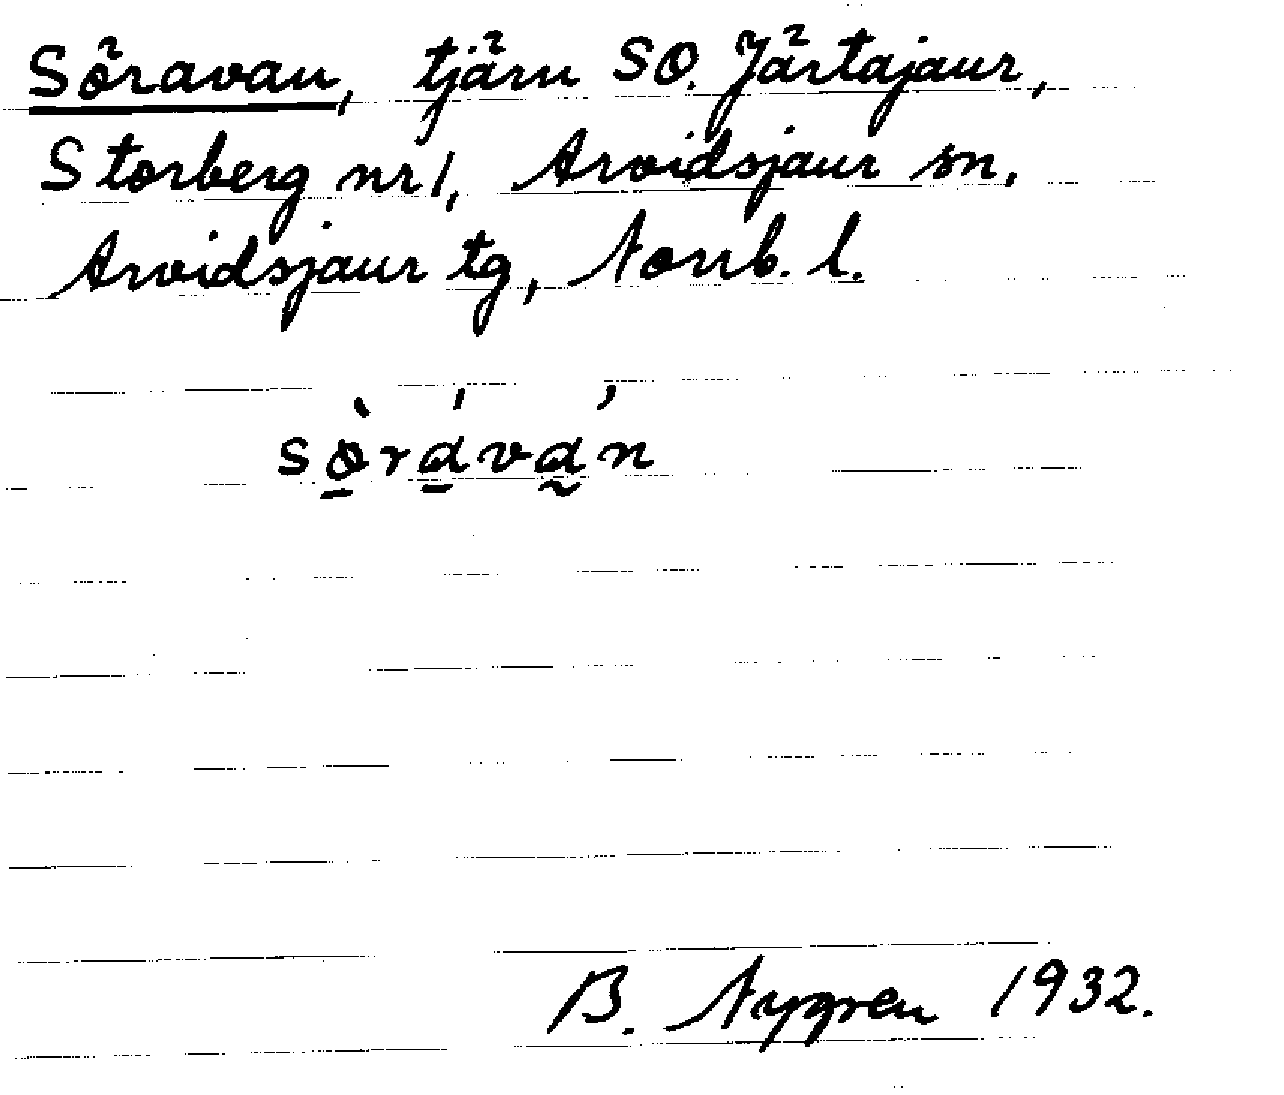 Söravan, tjärn SO. Järtajaur,
Storberg nr 1, Arvidsjaur sn.
Arvidsjaur tg, Norrb. l.
sø̱̀rά̱vά̰n
B. Nygren 1932.